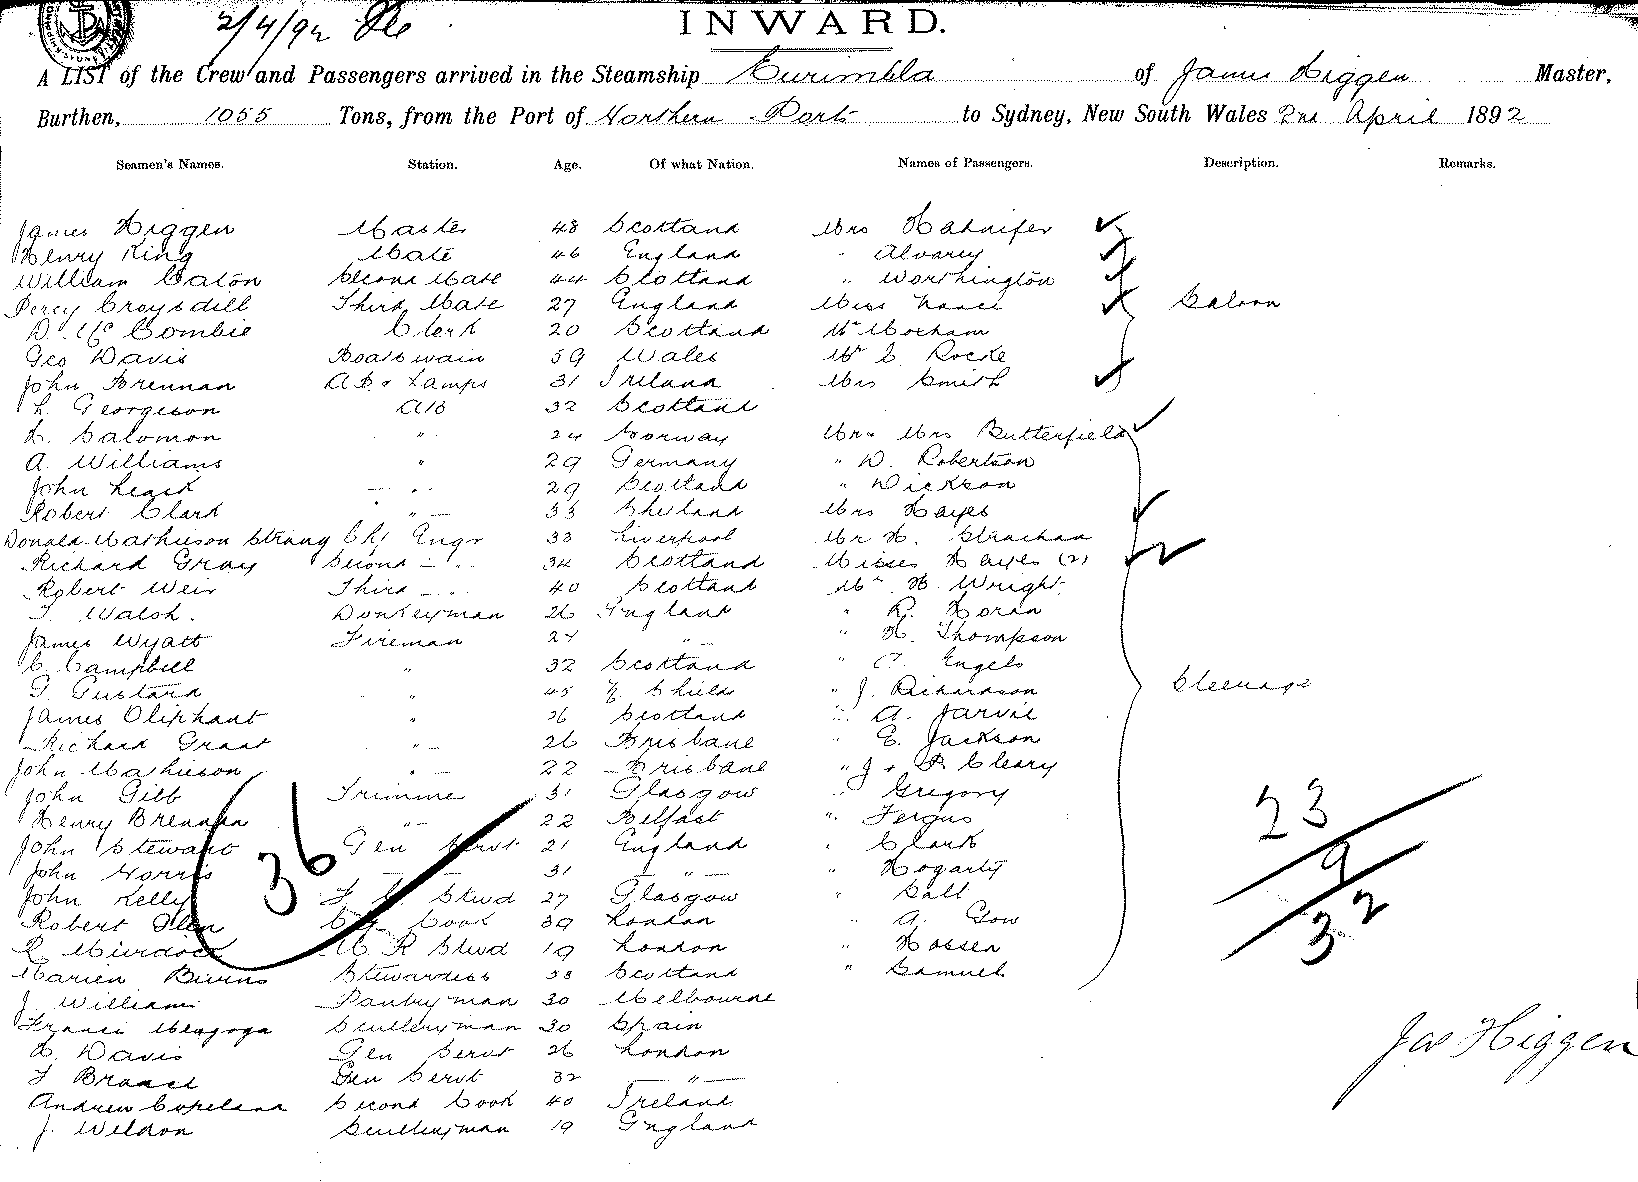 2/4/92
INWARD.
A LIST of the Crew and Passengers arrived in the Steamship Eurimbla of James Higgen Master,
Burthen, 1055 Tons, from the Port of Northern Ports to Sydney, New South Wales 2nd April 1892
Seamen's Names. Station. Age. Of what Nation. Names of Passengers. Description. Remarks.
James Higgen Master 48 Scotland Mrs
Henry King Mate 46 England "
William Caton Second Mate 44 Scotland " Worthington
Percy Croysdill Third Mate 27 England Miss Saloon
D. McCombie Clerk 20 Scotland Mr
Geo Davis Boatswain 59 Wales Mr Rocke
John Brennan AB & Lamps 31 Ireland Mrs Smith
L. Georgeson AB 32 Scotland
H. Salomon " 24 Norway Mr & Mrs Butterfield
A. Williams " 29 Germany " D. Robertson
John Leask " 29 Scotland " Dickson
Robert Clark " Shetland Mrs Hayes
Donald Mathieson Strang Chf Engr 33 Liverpool Mr H. Strachan
Richard Gray Second " 34 Scotland Misses Hayes (2)
Robert Weir Third " 40 Scotland Mr H. Wright
T. Walsh. Donkeyman 26 England " R. Horan
James Wyatt Fireman " " H. Thompson
C. Campbell " 32 Scotland " Engels
G. Gustard " 45 Shields " J. Richardson Steerage
James Oliphant " 26 Scotland " A. Jarvie
Richard Grant " 26 Brisbane " E. Jackson
John Mathieson " 22 Brisbane " J & P Cleary
John Gibb Trimmer 31 Glasgow " Gregory
Henry Brennan " 22 Belfast " Fergus
John Stewart Gen Servt 21 England " Clark
John Norris " 31 " " Hogarty
John Kelly Stwd 27 Glasgow " Salt
Robert Glen Cook 39 London " A. Gow
R Murdock M R Stwd 19 London " Hossen
Marien Burns Stewardess 38 Scotland " Samuel
J. Williams Pantryman 30 Melbourne
Francis Sculleryman 30 Spain
H. Davis Gen Servt 26 London
F Gen Servt 32 "
Andrew Copeland Second Cook 40 Ireland
J. Weldon Sculleryman 19 England
36
23
9
32
Jas Higgen